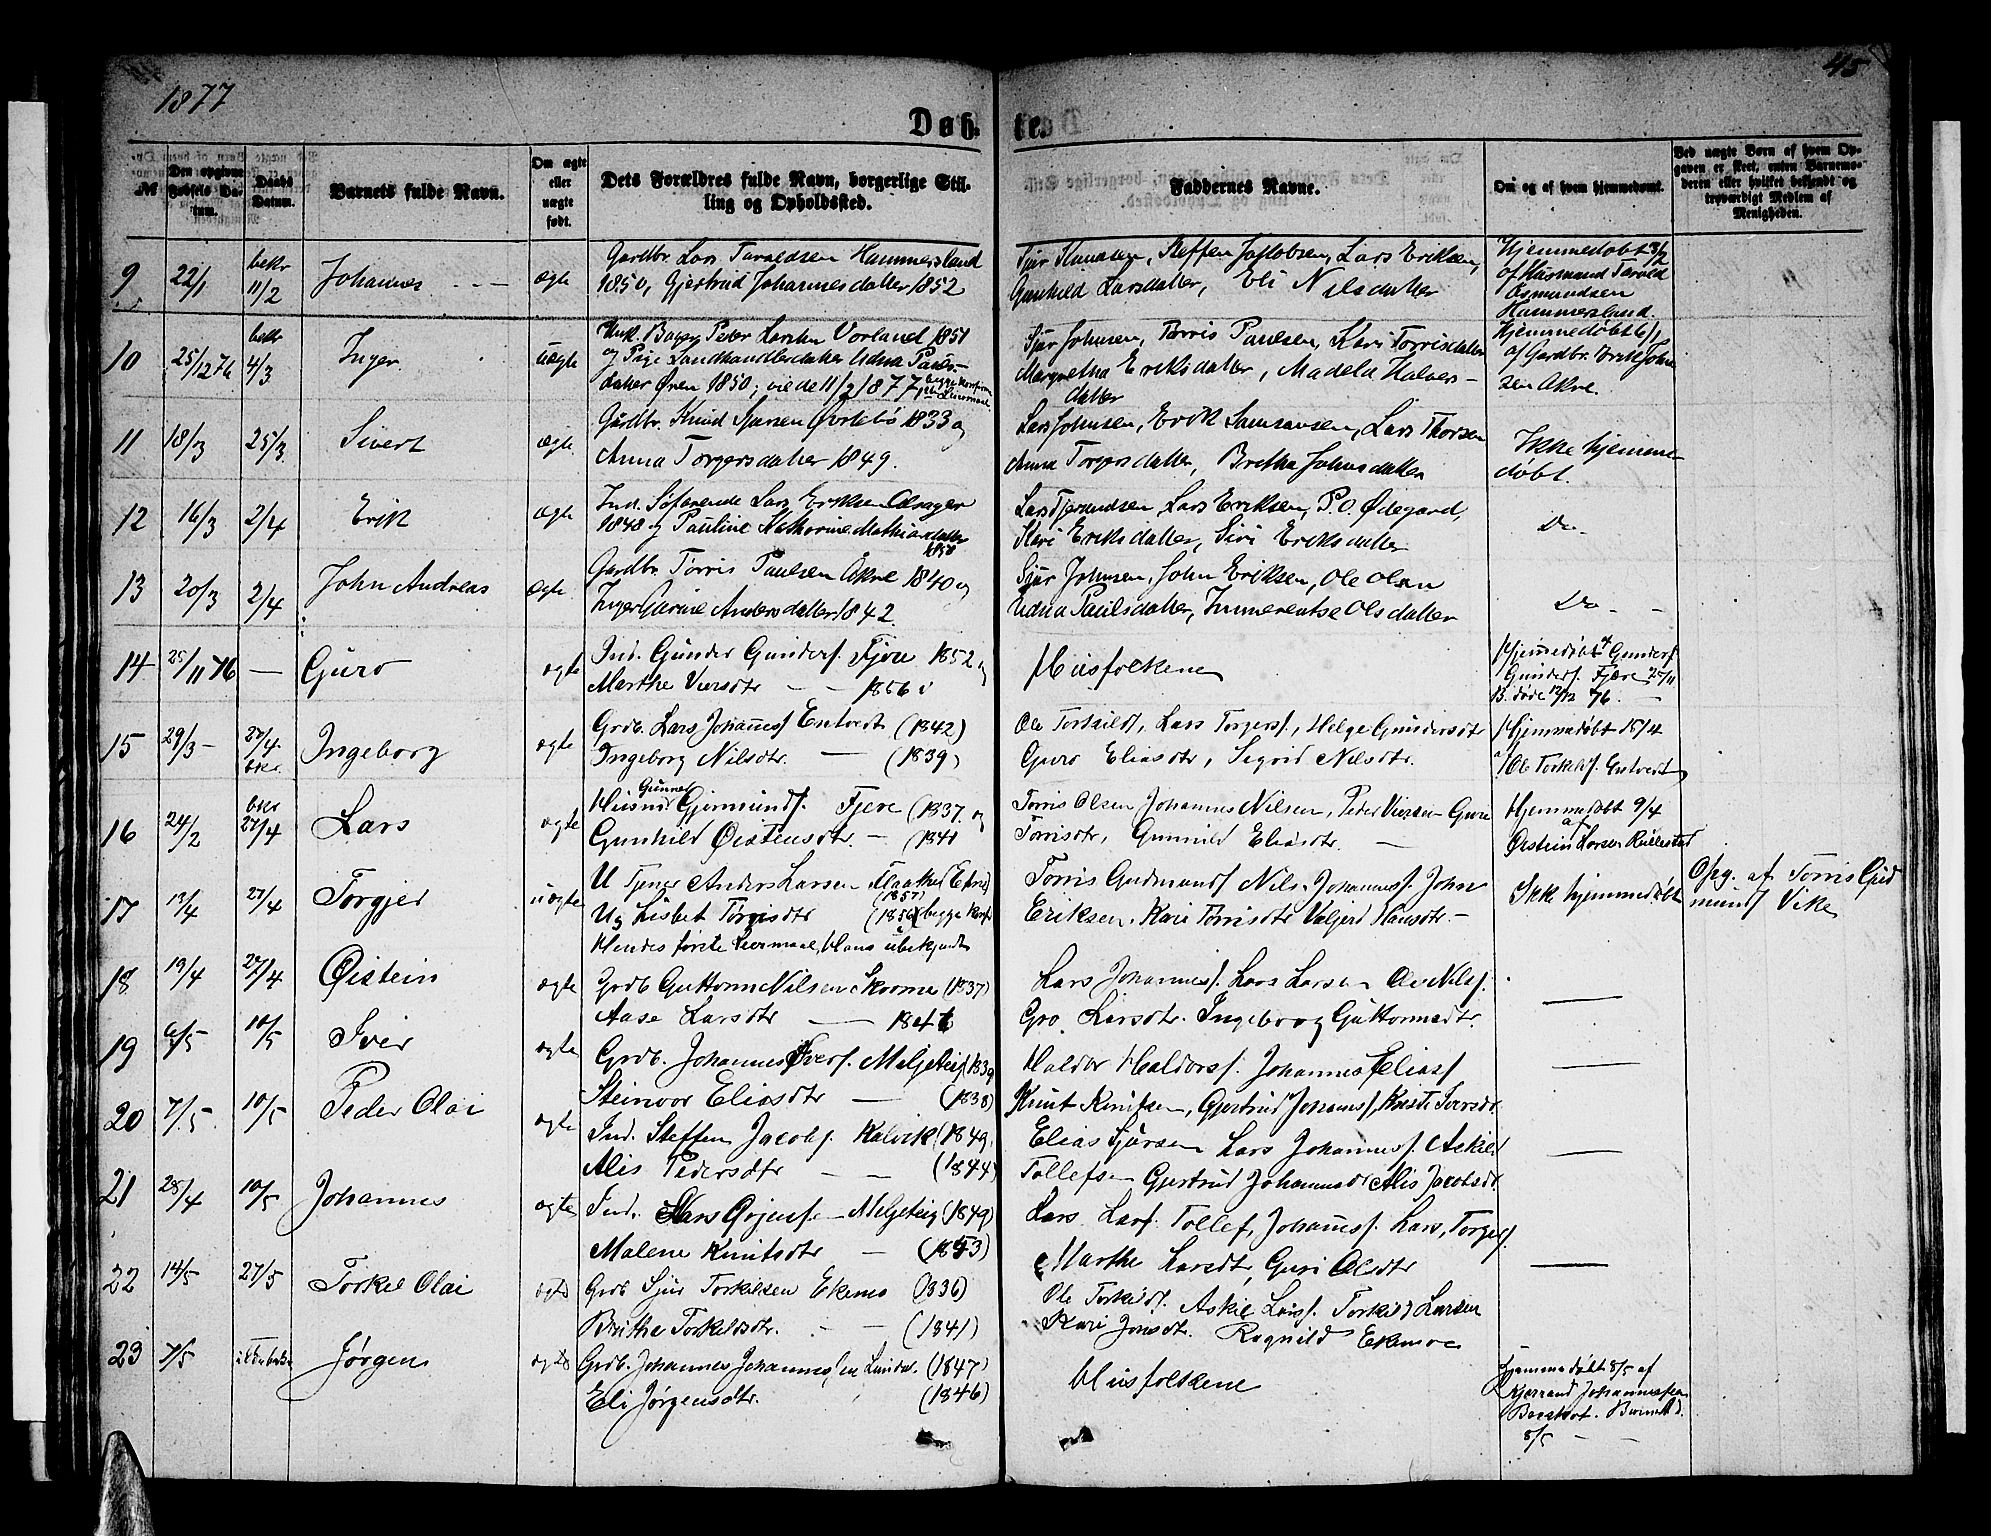 1877
45
Døb-
te.
№
Den opgivne Fødsels Datum.
Daabs Datum.
Barnets fulde Navn.
Om ægte eller uægte født.
Dets Forældres fulde Navn, borgerlige Stilling og Opholdssted.
Faddernes Navne.
Om og af hvem hjemmedøbt.
Ved uægte Børn af hvem Opgaven er skeet, enten Barnemoderen eller hvilket bekjendt og troværdigt Medlem af Menigheden.
9 22/1 bekr 11/2 Johannes ægte
Gardbr. Lars Taraldsen Hammersland
1850, Gjertrud Johannesdatter 1852
Steffen Jakobsen, Lars Eriksen,
Gunhild Larsdatter, Eli Nilsdatter
Hjemmedøbt
af Husmand Tarald
Osmundsen
Hammersland.
10 25/12 76 bekr 4/3 Inger uægte
Ungk. Peder Larsen Vorland 1851
og Pige Landhandlerdatter Udna Pauls-
datter Øren 1850; viede 11/2 1877, begge
Sjur Johnsen, Torris Paulsen, Kari Torrisdatter
Margretha Eriksdatter, Madela Halvers-
datter
Hjemmedøbt 6/1
af Gardbr. Erik John
sen Akre.
11 18/3 25/3 Sivert ægte
Gardbr. Knud Sjursen Øvrebø 1833 og
Anna Torgersdatter 1849.
Lars Johnsen, Erik Samsonsen, Lars Thorsen
Anna Torgersdatter, Bretha Johnsdatter
Ikke hjemme-
døbt.
12 16/3 2/4 Erik ægte
Ind. Søfarende Lars Eriksen
1848 og Pauline Katharine Mathiasdatter
1850
Lars Eriksen, P. O. Ødegaard,
Kari Eriksdatter, Siri Eriksdatter
Do
13 20/3 2/4 John Andreas Ægte
Gardbr. Torris Paulsen Akre 1840 og
Inger Garine Andersdatter 1842.
Sjur Johnsen, John Eriksen, Ole Olsen
Udna Paulsdatter, Immerentse Olsdatter
Do - -
14 25/11 76 — Guro ægte
Ind. Gunder Gunders. Fjære 1852 og
Marthe Viersdtr — — 1856
Husfolkene
Hjemmedøbt af Gunders.
Gunders. Fjære 25/11
B. døde 12/12 76. -
15 29/3 - 27/4 bekr. Ingeborg ægte
Grdb. Lars Johannes. Entvedt (1842)
Ingeborg Nilsdtr. — (1839)
Ole Torkilds., Lars Torgers., Helge Gundersdtr
Guro Eliasdtr, Sigrid Nilsdtr.
Hjemmedøbt 15/4
Ole Torkelds. Entvedt
16 24/2 bekr 27/4 Lars ægte
Gunner
Husmd Gjermunds. Fjære (1837. og
Gunhild Øisteinsdtr. — (1841
Torris Olsen Johannes Nilsen, Peder Viersen Guri
Torrisdtr, Gunnild Eliasdtr. —
Hjemmedøbt 9/4
af
Øistein Larsen Rullestad
17 13/4 27/4 Torgjer uægte
U Tjener Anders Larsen
(1857)
Ug Lisbet Torrisdtr (1856) begge konf
Hendes første Leiermaal, Hans ubekjendt
Torris Gudmunds. Nils Johannes. John
Eriksen. Kari Torrisdtr Valgjerd Hansdtr. -
Ikke hjemmedøbt
Opg. af Torris Gud
munds. Vike
18 13/4 27/4 Øistein ægte
Grdb Guttorm Nilsen Skromme (1837)
Aase Larsdtr — 1846
Lars Johannes. Lars Larsen Ole Nils.
Gro Larsdtr. Ingeborg Guttormsdtr.
—
19 6/5 10/5 Iver ægte
Grdb. Johannes Ivers. Meljeteig (1839
Steinvor Eliasdtr — (1838)
Haldor Haldors. Johannes Elias.
Knut Knutsen, Gjertrud Johannes., Kriste Iversdtr
—
20 7/5. 10/5 Peder Olai ægte
Ind. Steffen Jacobs. Kalvik (1849.
Alis Pedersdtr — — (1844)
Elias Sjursen Lars Johannes. Askild
Tollefsen Gjertrud Johannesdtr Alis Jacobsdtr.
—
21 28/4 10/5 Johannes ægte
Ind. Lars Meljeteig (1849)
Malene Knutsdtr — (1853)
Lars Lars. Tollef Johannes. Lars Torgers.
Marthe Larsdtr, Guri Olsdtr
—
22 14/5 27/5 Torkel Olai ægte
Grdb Sjur Torkildsen Ekemo (1836)
Brithe Torkildsdtr. - — (1841)
Ole Torkilds. Askil Lars. Torkild Larsen
Kari Jonsdtr. Ragnild Ekemoe
23 7/5 Jørgen ægte
Grdb. Johannes Johannessen Lunde. (1847)
Eli Jørgensdtr. (1846)
Husfolkene
Hjemmedøbt 8/5 af
Johannessen
8/5 — —